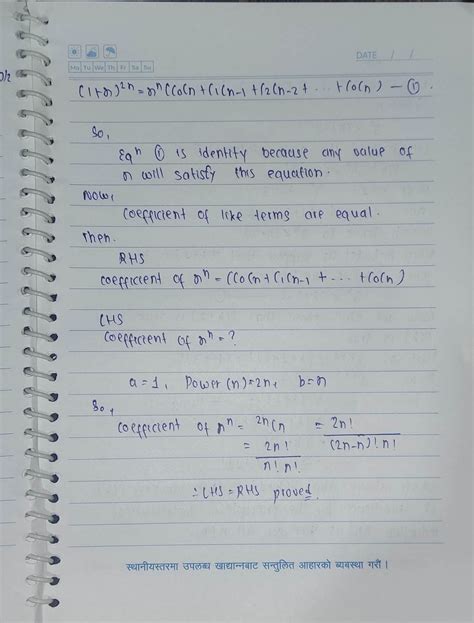 Mo Tu We Th Fr Sa Su
DATE / /
(1+x)²ⁿ = xⁿ(C0Cn + C1Cn-1 + C2Cn-2 + ... + C0Cn) — ①.
So,
Eqⁿ ① is identity because any value of
x will satisfy this equation.
Now,
coefficient of like terms are equal.
Then.
RHS
coefficient of xⁿ = (C0Cn + C1Cn-1 + ... + C0Cn)
LHS
coefficient of xⁿ = ?
a=1, Power (n)=2n, b=x
So,
coefficient of xⁿ = ²ⁿCn = 2n! / (2n-n)! n!
= 2n! / n! n!
∴ LHS = RHS proved.
स्थानीयस्तरमा उपलब्ध खाद्यान्नबाट सन्तुलित आहारको ब्यवस्था गरौं ।